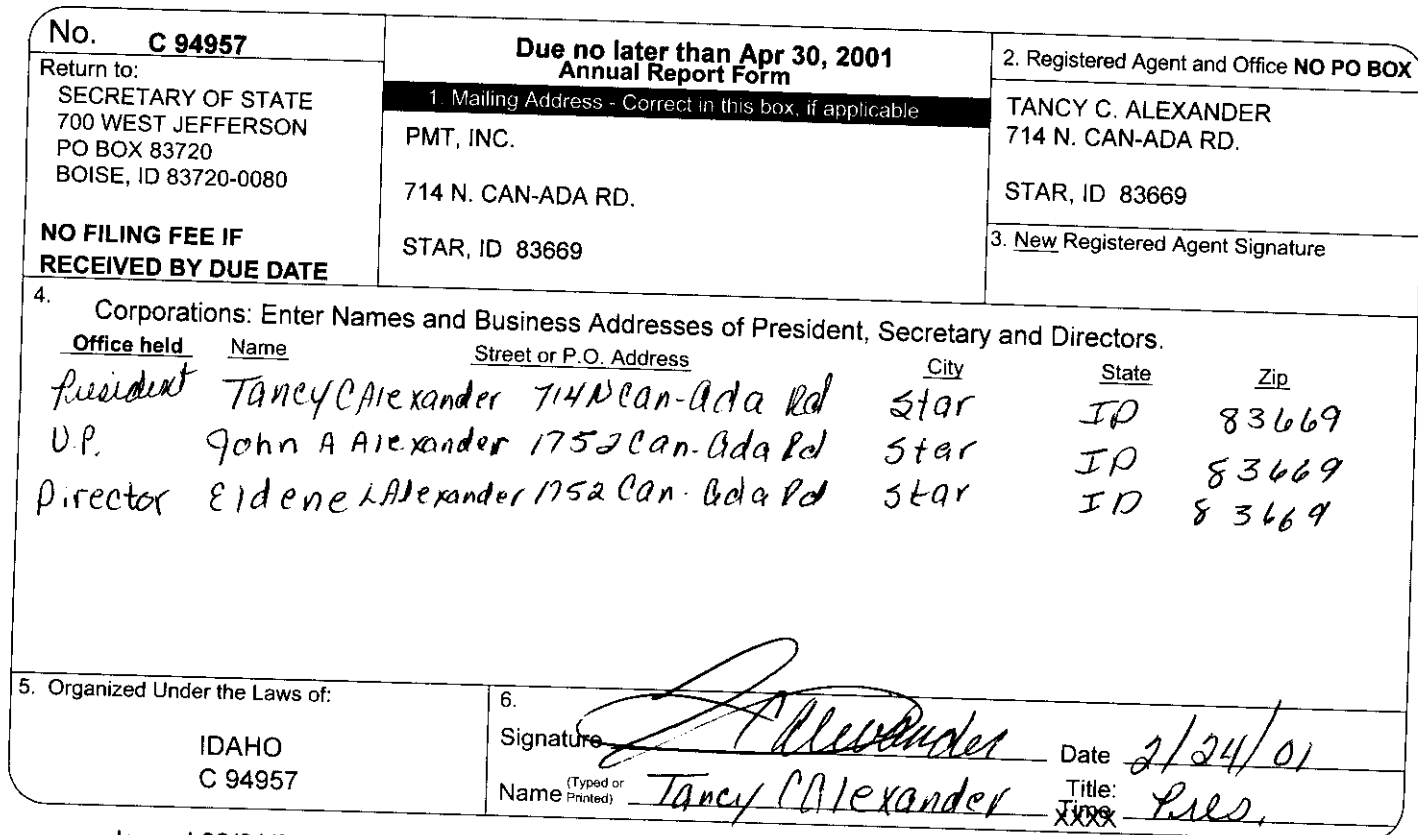 No. C 94957
Return to:
SECRETARY OF STATE
700 WEST JEFFERSON
PO BOX 83720
BOISE, ID 83720-0080
NO FILING FEE IF
RECEIVED BY DUE DATE
Due no later than Apr 30, 2001
Annual Report Form
1. Mailing Address - Correct in this box, if applicable
PMT, INC.
714 N. CAN-ADA RD.
STAR, ID 83669
2. Registered Agent and Office NO PO BOX
TANCY C. ALEXANDER
714 N. CAN-ADA RD.
STAR, ID 83669
3. New Registered Agent Signature
4. Corporations: Enter Names and Business Addresses of President, Secretary and Directors.
Office held Name Street or P.O. Address City State Zip
President Tancy C Alexander 714 N Can-Ada Rd Star ID 83669
V.P. John A Alexander 1752 Can-Ada Rd Star ID 83669
Director Eldene L Alexander 1752 Can-Ada Rd Star ID 83669
5. Organized Under the Laws of:
IDAHO
C 94957
6.
Signature T C Alexander Date 2/24/01
Name (Typed or Printed) Tancy C Alexander Title: Pres.